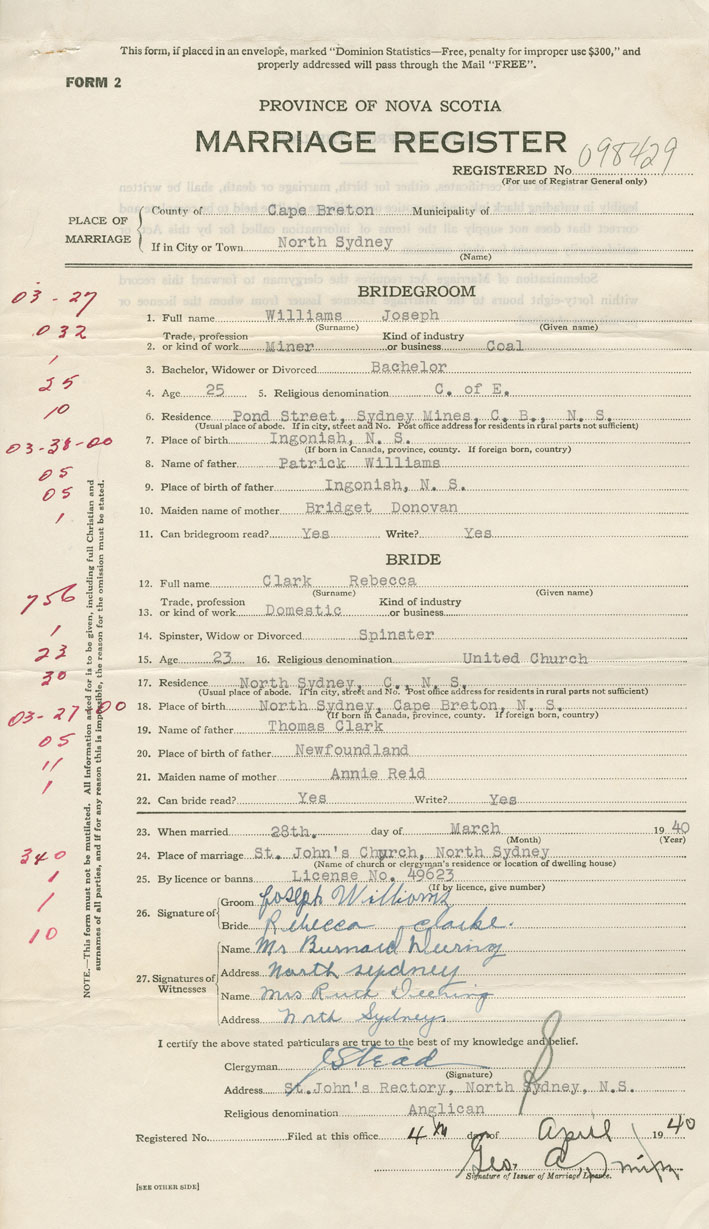 This form, if placed in an envelope, marked "Dominion Statistics—Free, penalty for improper use $300," and
properly addressed will pass through the Mail "FREE".
FORM 2
PROVINCE OF NOVA SCOTIA
MARRIAGE REGISTER
REGISTERED No. 098429
(For use of Registrar General only)
PLACE OF MARRIAGE
County of Cape Breton Municipality of
If in City or Town North Sydney
(Name)
BRIDEGROOM
03-27
1. Full name Williams Joseph
(Surname) (Given name)
032
Trade, profession Kind of industry
2. or kind of work Miner or business Coal
1
3. Bachelor, Widower or Divorced Bachelor
25
4. Age 25 5. Religious denomination C. of E.
10
6. Residence Pond Street, Sydney Mines, C. B., N. S.
(Usual place of abode. If in city, street and No. Post office address for residents in rural parts not sufficient)
03-38-00
7. Place of birth Ingonish, N. S.
(If born in Canada, province, county. If foreign born, country)
05
8. Name of father Patrick Williams
05
9. Place of birth of father Ingonish, N. S.
1
10. Maiden name of mother Bridget Donovan
11. Can bridegroom read? Yes Write? Yes
BRIDE
12. Full name Clark Rebecca
(Surname) (Given name)
756
Trade, profession Kind of industry
13. or kind of work Domestic or business
1
14. Spinster, Widow or Divorced Spinster
23
15. Age 23 16. Religious denomination United Church
30
17. Residence North Sydney, C., N. S.
(Usual place of abode. If in city, street and No. Post office address for residents in rural parts not sufficient)
03-27-00
18. Place of birth North Sydney, Cape Breton, N. S.
(If born in Canada, province, county. If foreign born, country)
05
19. Name of father Thomas Clark
11
20. Place of birth of father Newfoundland
1
21. Maiden name of mother Annie Reid
22. Can bride read? Yes Write? Yes
23. When married 28th. day of March 1940
(Month) (Year)
340
24. Place of marriage St. John's Church, North Sydney
(Name of church or clergyman's residence or location of dwelling house)
1
25. By licence or banns License No. 49623
(If by licence, give number)
1
26. Signature of
Groom Joseph Williams
Bride Rebecca Clarke.
10
27. Signatures of Witnesses
Name Mr Burnard Deering
Address North Sydney
Name Mrs Ruth Deering
Address North Sydney
NOTE.—This form must not be mutilated. All information asked for is to be given, including full Christian and
surnames of all parties, and if for any reason this is impossible, the reason for the omission must be stated.
I certify the above stated particulars are true to the best of my knowledge and belief.
Clergyman J Stead
(Signature)
Address St. John's Rectory, North Sydney, N.S.
Religious denomination Anglican
Registered No. Filed at this office 4th day of April 1940
Geo. A. Smith
Signature of Issuer of Marriage Licence.
[SEE OTHER SIDE]